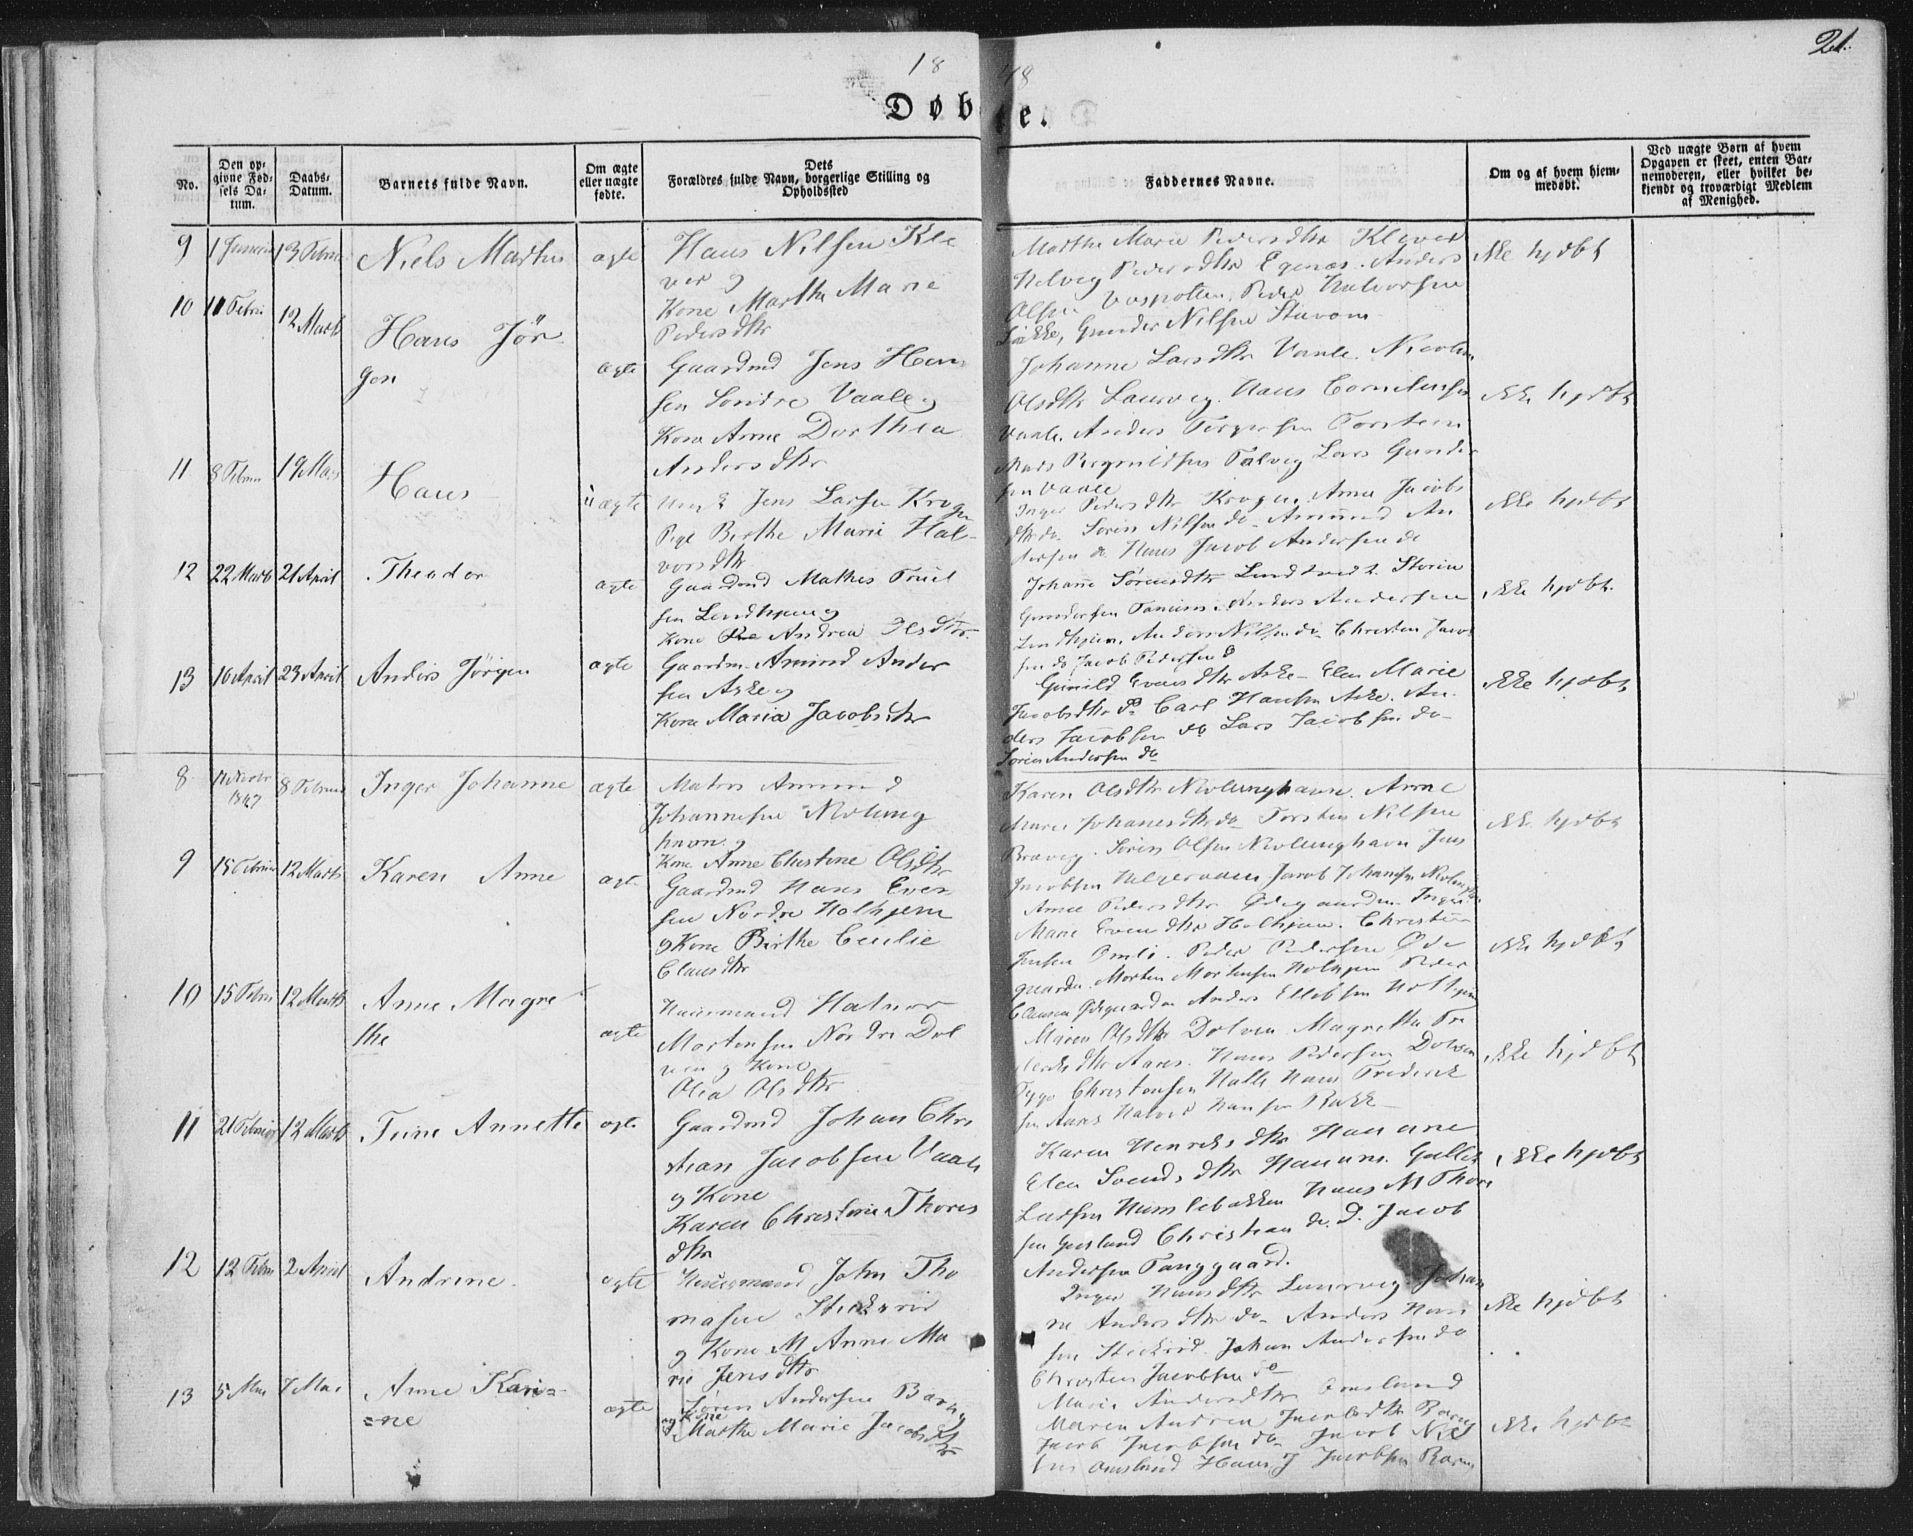 21.
18 48
Døbte.
No.
Den op-
givne Fød-
sels Da-
tum.
Daabs-
Datum.
Barnets fulde Navn.
Om ægte
eller uægte
fødte.
Dets
Forældres fulde Navn, borgerlige Stilling og
Opholdssted
Faddernes Navne.
Om og af hvem hjem-
medøbt.
Ved uægte Børn af hvem
Opgaven er skeet, enten Bar-
nemoderen, eller hvilket be-
kjendt og troværdigt Medlem
af Menighed.
9 1 Januar 13 Febru Niels Mathis ægte Hans Nilsen Kle
ver og
Kone Marthe Marie
Pedersdtr
Marthe Marie Pedersdtr Klever
Helvig Pedersdtr Egenæs. Anders
Olsen Peder Halvorsen
Løkke, Gunder Nilsen Stavom
ikke hjdbt
10 11 Febru 12 Marts Hans Jør-
gen
ægte Gaardmd Jens Han
sen Søndre Vaale og
Kone Anne Dorthea
Andersdtr
Johanne Larsdtr Vaale.
Olsdtr Laurvig. Hans Cornelius
Vaale. Anders
Talvig Lars Gunder
sen Vaale
ikke hjdbt
11 8 Febru 19 Mars Hans uægte Jens Larsen Krogen
Pige Birthe Marie Hal-
vorsdtr
Inger Pedersdtr Krogen. Anne Jacobs
dtr do. Søren Nilsen do. Amund An
dersen do Hans Jacob Andersen do
ikke hjdbt
12 22 Marts 21 April Theodor ægte Gaardmd Mathes Truel
sen Lindhjem og
Kone Andrea Olsdtr
Johanne Sørensdtr
Gundersen Anders Andersen
Lindhjem. Anders Nilsen do Christen Jacob
sen do Jacob Pedersen do
ikke hjdbt.
13 16 April 23 April Anders Jørgen ægte Gaardm. Amund Ander
sen Aske og
Kone Maria Jacobsdtr
Gunild Evensdtr Aske Elen Marie
Jacobsdtr do Carl Hansen Aske. An
ders Jacobsen do Lars Jacobsen do
Søren Andersen do
ikke hjdbt
8 1847 8 Februar Inger Johanne ægte Matros Amund
Johannesen Nevlung
havn. og
Kone Anne Christine Olsdtr
Karen Olsdtr Nevlunghavn. Anne
Marie Johanesdtr do Torsten Nilsen
Søren Olsen Nevlunghavn Jens
Jacobsen Helgeraaen Jacob Johansen
ikke hjdbt
9 15 Februar 12 Marts Karen Anne ægte Gaardmd Hans Even
sen Nordre Holhjem
og Kone Birthe Cecilie
Clausdtr
Anne Pedersdtr Ødegaarden Inger
Marie Evendtr Holhjem. Christen
Jensen Omli. Peder Pedersen Øde
gaarden. Morten Mortensen Holhjem Peder
Clausen Ødegaarden Anders Ellefsen Holhjem
ikke hjdbt
10 15 Febru 12 Marts Anne Magre
the
ægte Huusmand Halvor
Mortensen Nordre Dol
ven og Kone
Olea Olsdtr
Maren Olsdtr Dolven Magrethe Fre
deriksdtr Aaros. Hans Pedersen Dolven
Tyge Christensen Halle Hans Frederik
sen Aaros Halvor Hansen Rakke
ikke hjdbt
11 21 Februar 12 Marts Trine Annette ægte Gaardmd Johan Chri
stian Jacobsen Vaale
og Kone
Karen Christine Thores
dtr
Karen Henriksdtr Hanane
Elen Svendsdtr Hanane. Gulles
Larsen Humlebakken Hans M Thor
sen Christian do. D. Jacob
Andersen Tanggaard.
ikke hjdbt
12 12 Febru 2 April Andrine. ægte Huusmand John Tho
masen
og Kone M Anne Ma
rie Jensdtr
Inger Hansdtr Laurvig. Johan
ne Andersdtr do. Anders Han
sen Johan Andersen do
Christen Jacobsen do
ikke hjdbt
13 5 Mai 7 Mai Anne Kari=
=ne
ægte Søren Andersen Barug
og Kone
Marthe Marie Jacobsdtr
Maria Andersdtr Omsland
Maren Andrea Jacobsdtr Barug
Jacob Jacobsen do. Jacob Niel
sen Omsland Hans J Jacobsen Barug
ikke hjdbt